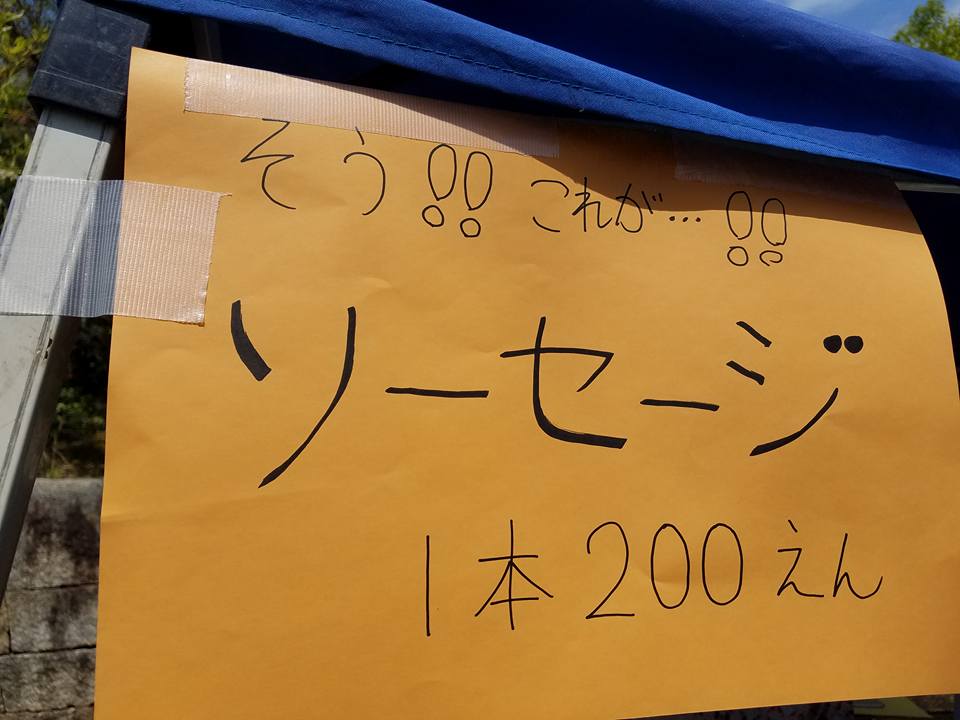 そう!! これが…!!
ソーセージ
1本200えん